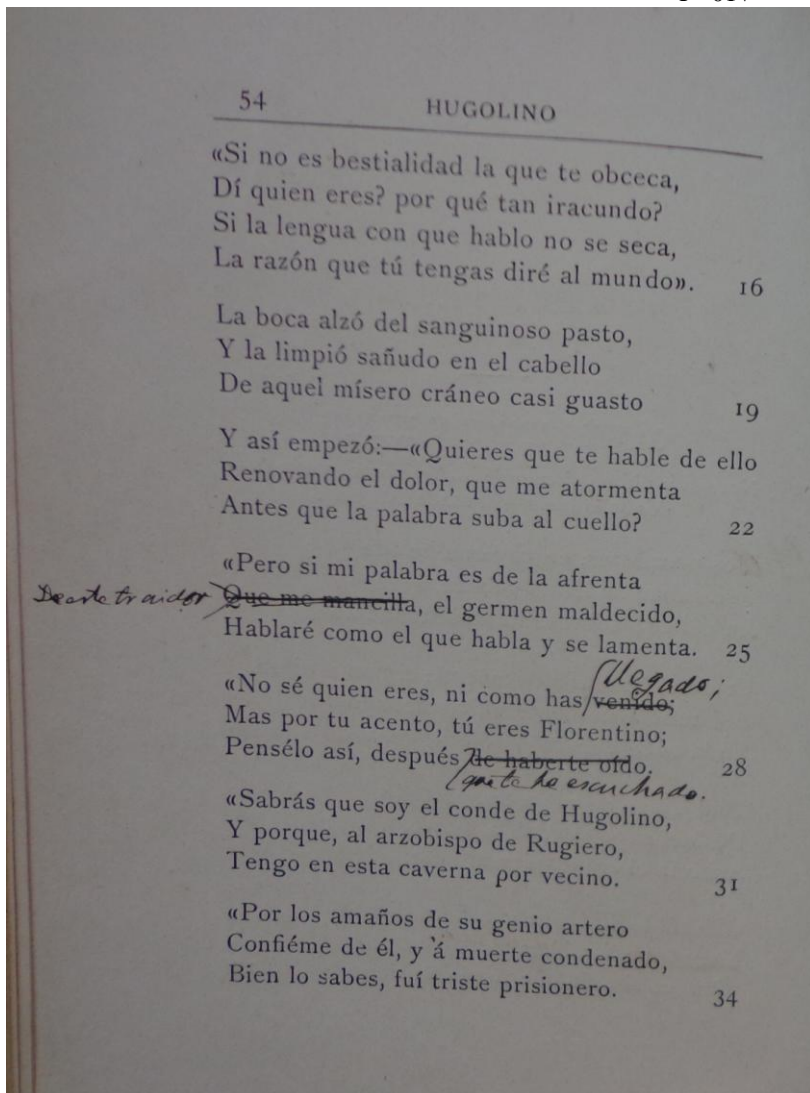 54 HUGOLINO
«Si no es bestialidad la que te obceca,
Dí quien eres? por qué tan iracundo?
Si la lengua con que hablo no se seca,
La razón que tú tengas diré al mundo». 16
La boca alzó del sanguinoso pasto,
Y la limpió sañudo en el cabello
De aquel mísero cráneo casi guasto 19
Y así empezó:—«Quieres que te hable de ello
Renovando el dolor, que me atormenta
Antes que la palabra suba al cuello? 22
«Pero si mi palabra es de la afrenta
De este traidor Que me mancilla, el germen maldecido,
Hablaré como el que habla y se lamenta. 25
llegado;
«No sé quien eres, ni como has venido;
Mas por tu acento, tú eres Florentino;
Pensélo así, después de haberte oído. 28
que te he escuchado.
«Sabrás que soy el conde de Hugolino,
Y porque, al arzobispo de Rugiero,
Tengo en esta caverna por vecino. 31
«Por los amaños de su genio artero
Confiéme de él, y á muerte condenado,
Bien lo sabes, fuí triste prisionero. 34